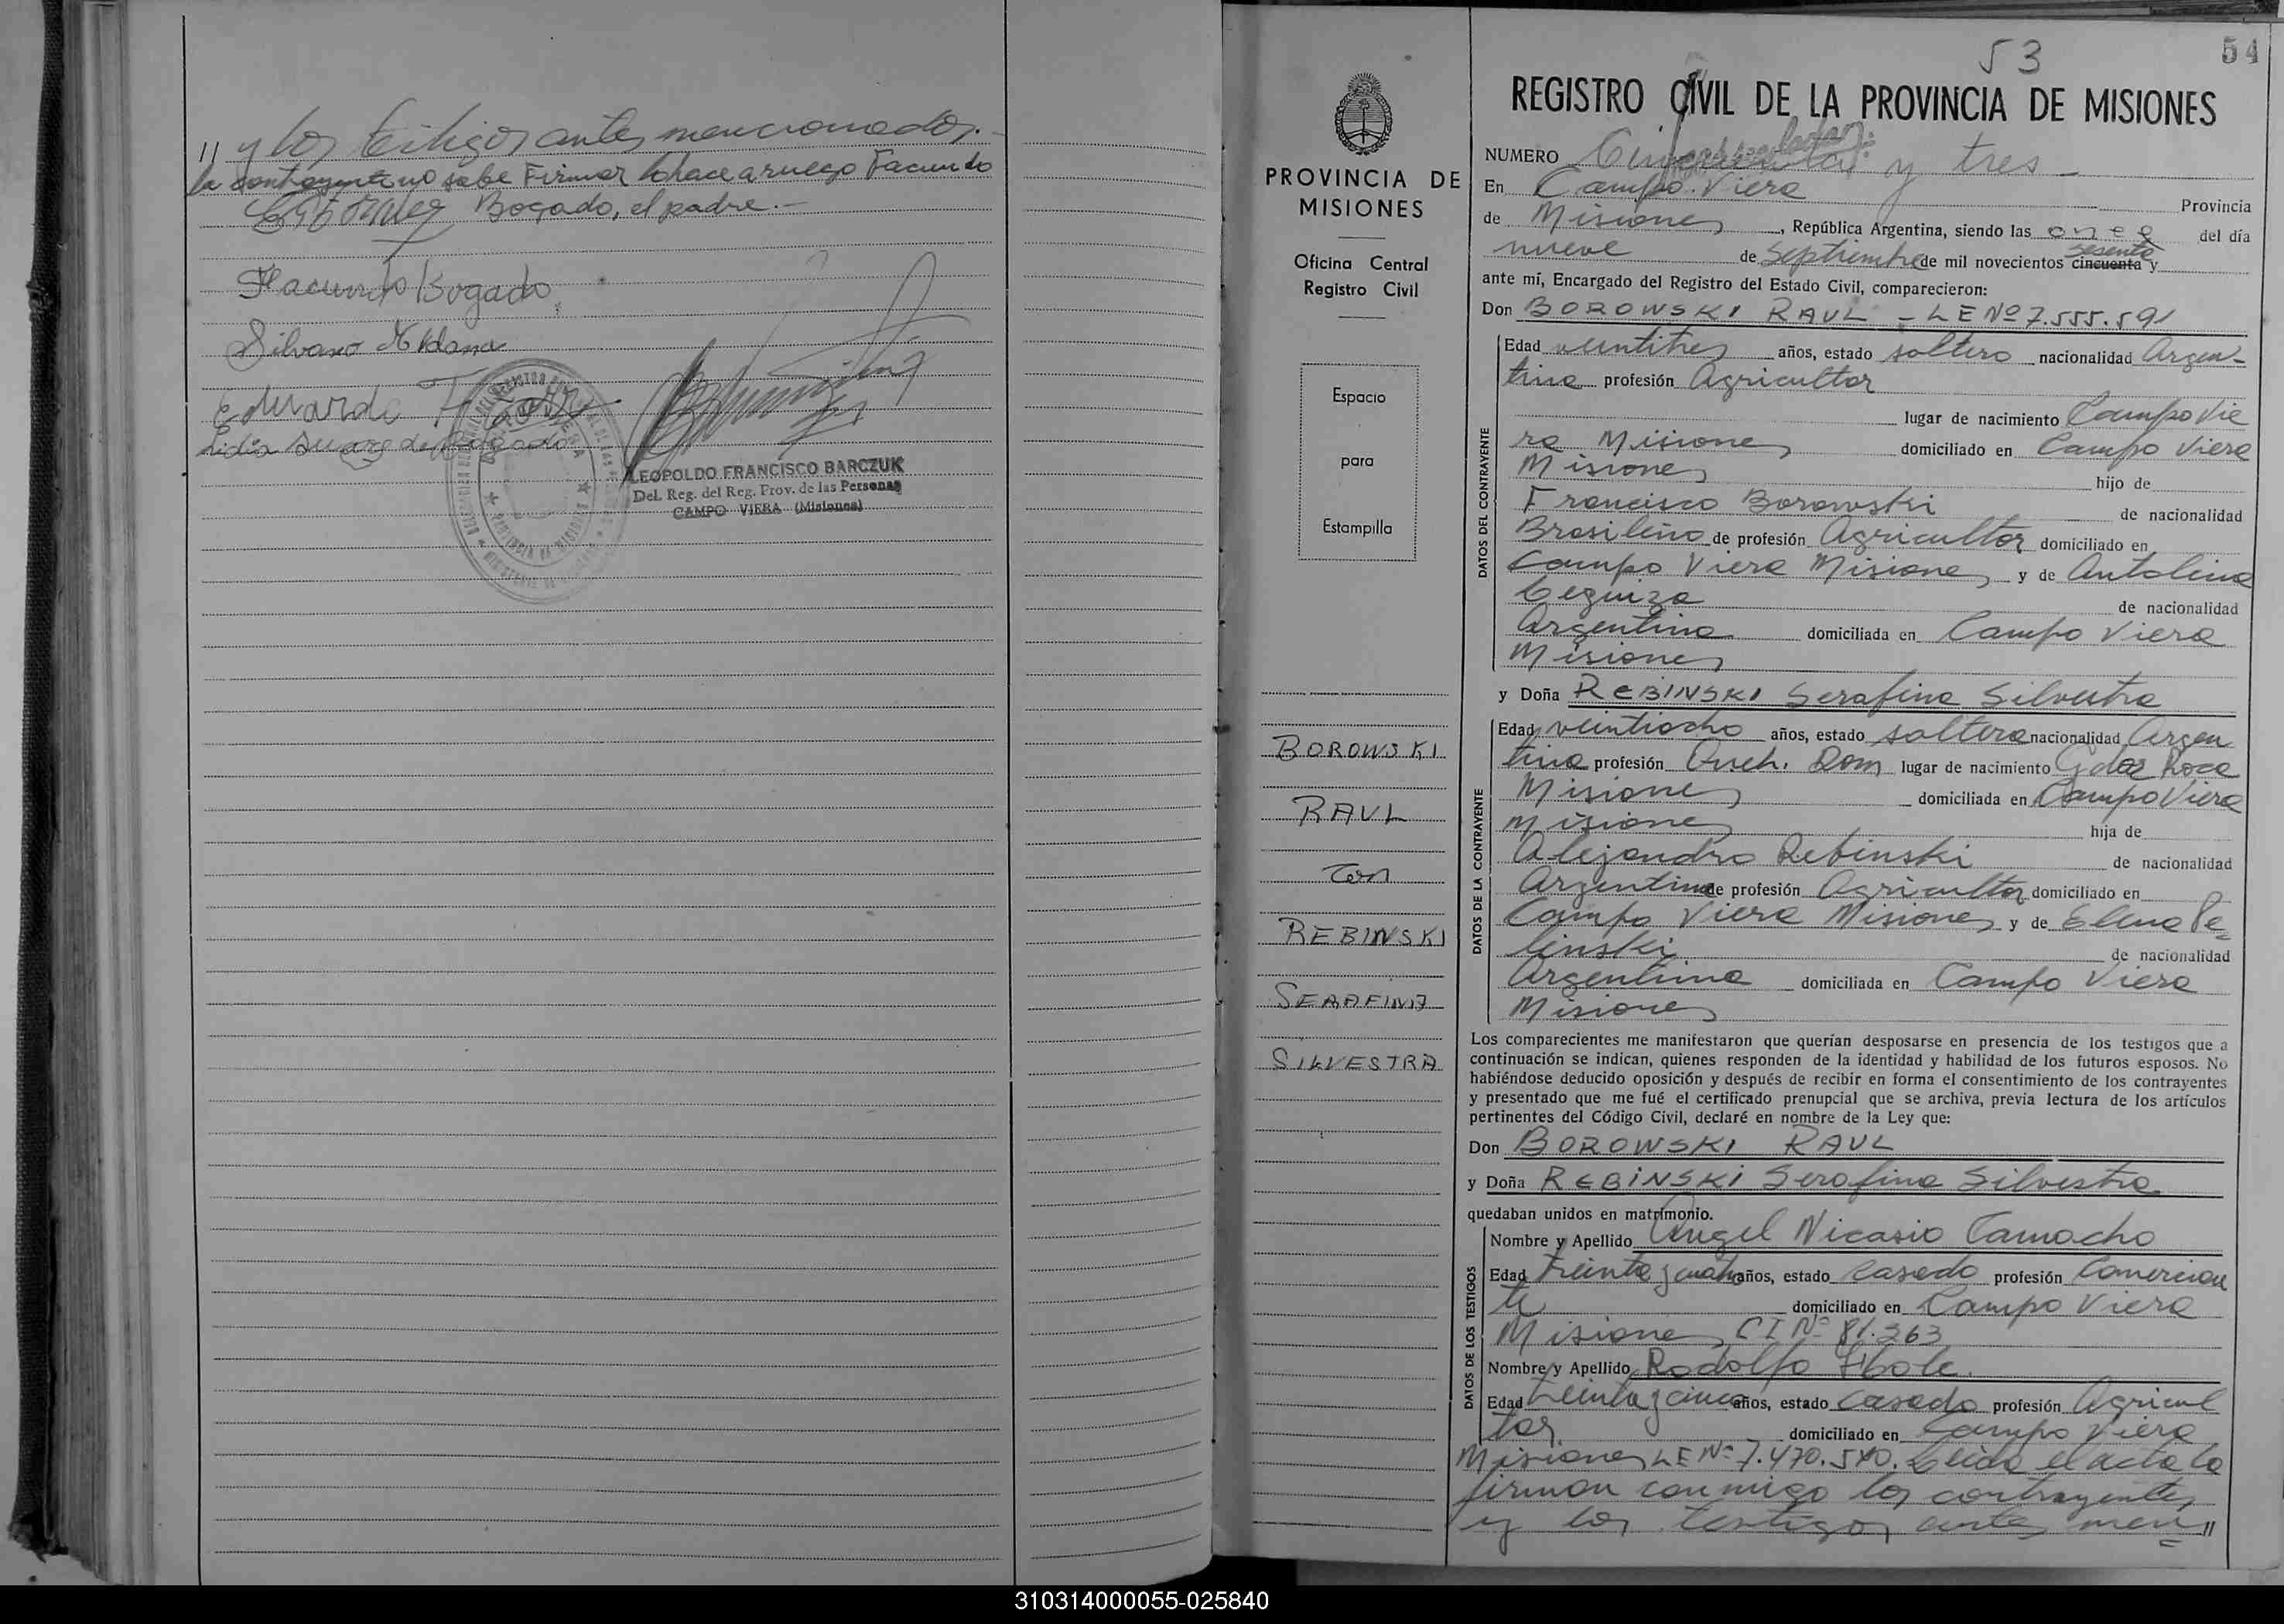 // y los testigos antes mencionados.-
la contrayente no sabe Firmar lo hace a ruego Facundo
Bogado, el padre.-
Facundo Bogado
Silvano Aldana
Eduardo
Lidia Suarez de Bogado
LEOPOLDO FRANCISCO BARCZUK
Del. Reg. del Reg. Prov. de las Personas
CAMPO VIERA (Misiones)
PROVINCIA DE
MISIONES
Oficina Central
Registro Civil
Espacio
para
Estampilla
BOROWSKI
RAUL
Con
REBINSKI
SERAFINA
SILVESTRA
53
54
REGISTRO CIVIL DE LA PROVINCIA DE MISIONES
NUMERO Cincuenta y tres -
En Campo Viera
Provincia
de Misiones, República Argentina, siendo las once del día
sesenta
nueve de Septiembre de mil novecientos cincuenta y
ante mí, Encargado del Registro del Estado Civil, comparecieron:
Don BOROWSKI RAUL - LE Nº 7.555.591
DATOS DEL CONTRAYENTE
Edad veintitres años, estado soltero nacionalidad Argen-
tina profesión Agricultor
lugar de nacimiento Campo Vie
ra Misiones domiciliado en Campo Viera
Misiones hijo de
Francisco Borowski de nacionalidad
Brasileño de profesión Agricultor domiciliado en
Campo Viera Misiones y de Antolina
Ceguiza de nacionalidad
Argentina domiciliada en Campo Viera
Misiones
y Doña REBINSKI Serafina Silvestra
DATOS DE LA CONTRAYENTE
Edad veintiocho años, estado soltera nacionalidad Argen
tina profesión Queh. Dom lugar de nacimiento Gdor Roca
Misiones domiciliada en Campo Viera
Misiones hija de
Alejandro Rebinski de nacionalidad
Argentina de profesión Agricultor domiciliado en
Campo Viera Misiones y de Elena Pe
linski de nacionalidad
Argentina domiciliada en Campo Viera
Misiones
Los comparecientes me manifestaron que querían desposarse en presencia de los testigos que a
continuación se indican, quienes responden de la identidad y habilidad de los futuros esposos. No
habiéndose deducido oposición y después de recibir en forma el consentimiento de los contrayentes
y presentado que me fué el certificado prenupcial que se archiva, previa lectura de los artículos
pertinentes del Código Civil, declaré en nombre de la Ley que:
Don BOROWSKI RAUL
y Doña REBINSKI Serafina Silvestra
quedaban unidos en matrimonio.
DATOS DE LOS TESTIGOS
Nombre y Apellido Angel Nicasio Camacho
Edad Treinta y cuatro años, estado Casado profesión Comercian
te domiciliado en Campo Viera
Misiones CI Nº 81.363
Nombre y Apellido Rodolfo
Edad treinta y cinco años, estado Casado profesión Agricul
tor domiciliado en Campo Viera
Misiones LE Nº 7.470.540. Leida el acta la
firman conmigo los contrayentes
y los testigos antes men//
310314000055-025840